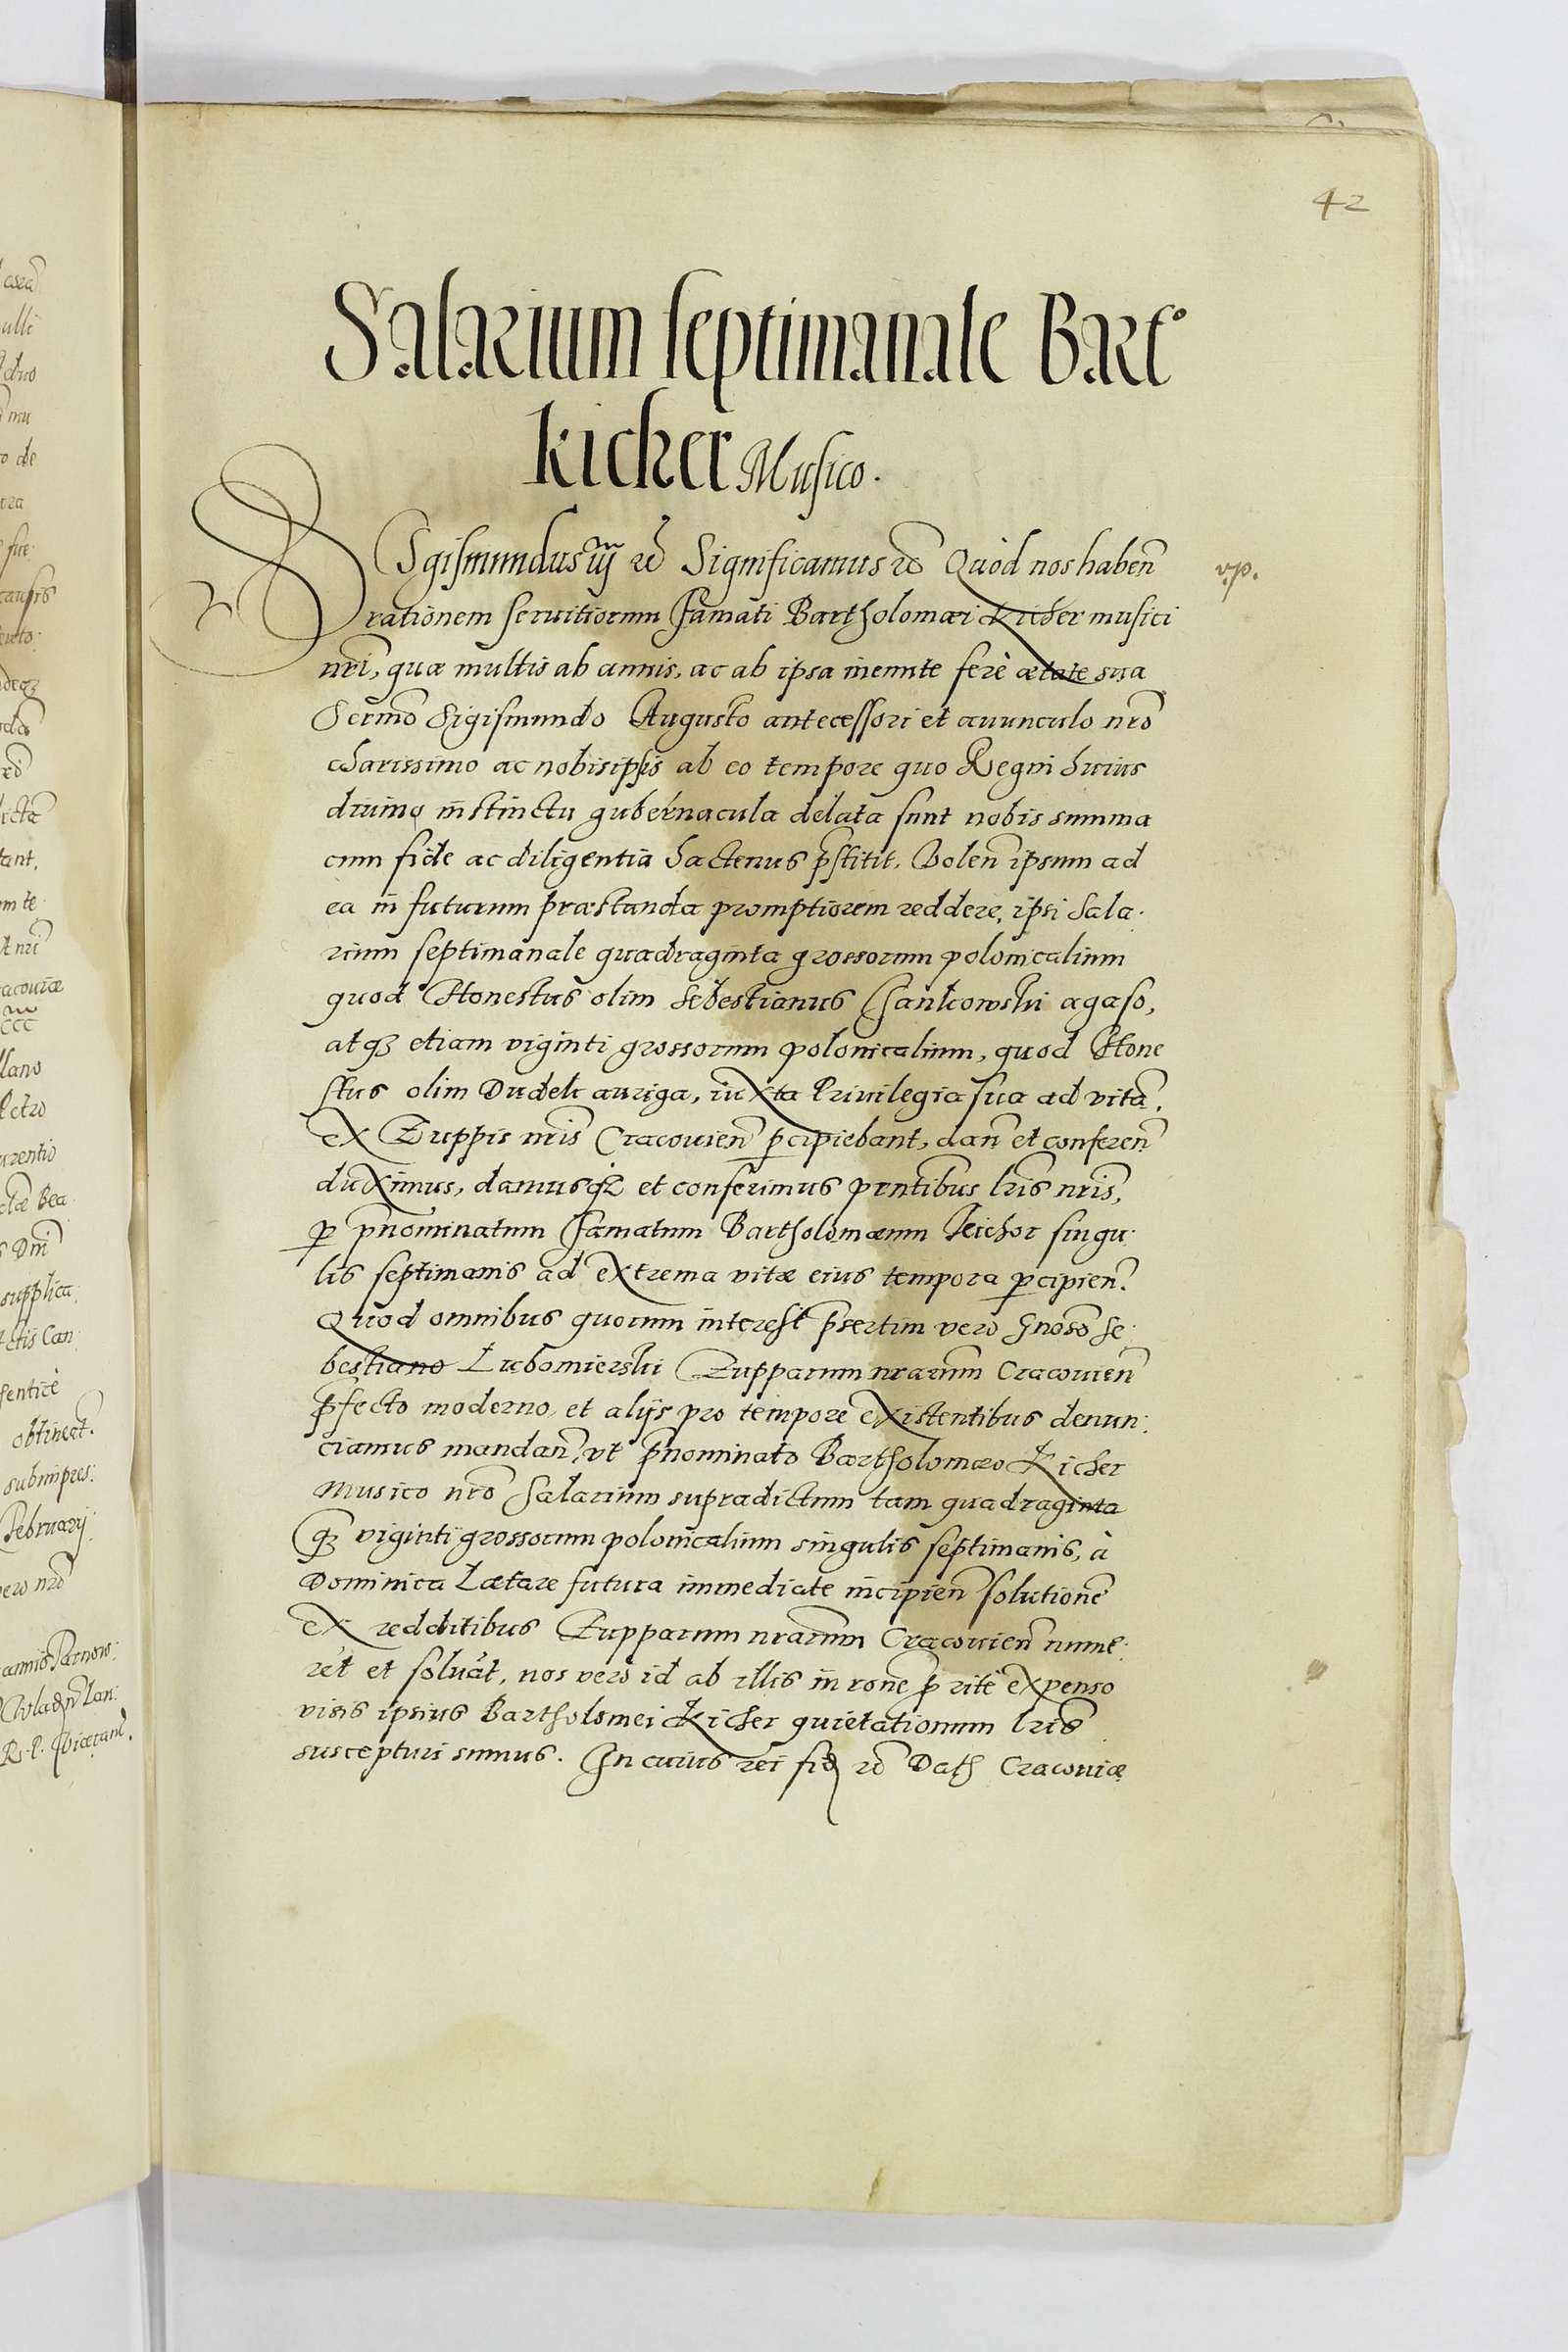 42
Salarium septimanale Bart°
Kicher Musico.
Sigismundus iij etc Significamus etc Quòd nos haben̄
vp.
rationem seruitiorum famati Bartholomæi Kicher musici
nr̄i, quæ multis ab annis, ac ab ipsa ineunte ferè ætate sua
Sermō Sigismundo Augusto antecessori et auunculo nrō
charissimo ac nobisipsis ab eo tempore quo Regni huius
diuino instinctu gubernacula delata sunt nobis summa
cum fide ac diligentia hactenus p̄stitit. Volen̄ ipsum ad
ea in futurum præstanda promptiorem reddere, ipsi Sala-
rium septimanale quadraginta grossorum polonicalium
quod Honestus olim Sebestianus Jankowski agaso,
atq₃ etiam viginti grossorum polonicalium, quod Hone
stus olim Dudek auriga, iuxta Priuilegia sua ad vitā,
ex Zuppis nr̄is Cracouien̄ p̱cipiebant, dan̄ et conferen̄
duximus, damusq₃ et conferimus pn̄tibus lr̄is nr̄is,
p̱ p̄nominatum famatum Bartholomæum Kicher singu-
lis septimanis ad extrema vitæ eius tempora p̱cipien̄.
Quod omnibus quorum interest p̄sertim vero Gnōso Se-
bestiano Lubomierski Zupparum nrarum Cracouien̄
p̄fecto moderno, et alijs pro tempore existentibus denun-
ciamus mandan̄, vt p̄nominato Bartholomæo Kicher
Musico nrō Salarium supradictum tam quadraginta
q̄₃ viginti grossorum polonicalium singulis septimanis, à
Dominica Lætare futura immediate incipien̄ solutionē
ex redditibus Zupparum nrarum Cracouien̄ nume-
ret et soluat, nos vero id ab illis in ronē p̱ ritè expenso
visis ipsius Bartholomei Kicher quietationum lr̄is
suscepturi sumus. In cuius rei fid etc Dat Cracouiæ